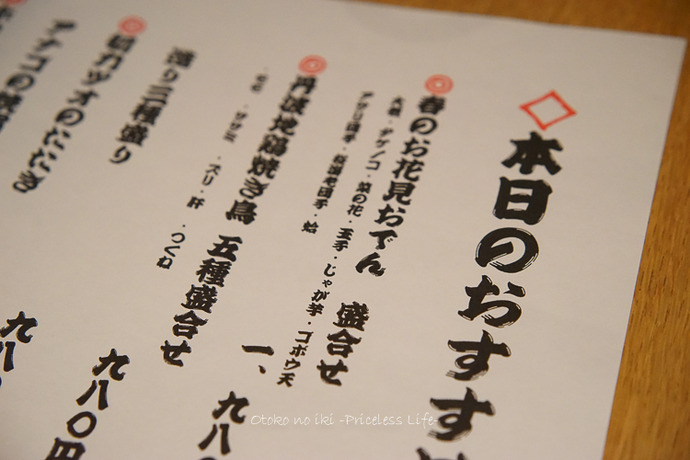 本日のおすすめ
春のお花見おでん 盛合せ
大根・タケノコ・菜の花・玉子・じゃが芋・ゴボウ天
一、
丹波地鶏焼き鳥 五種盛合せ
・ササミ・ズリ・肝・つくね
九八
造り三種盛り
九八〇円
初カツオのたたき
九八
アナゴの
Otoko no iki -Priceless Life-